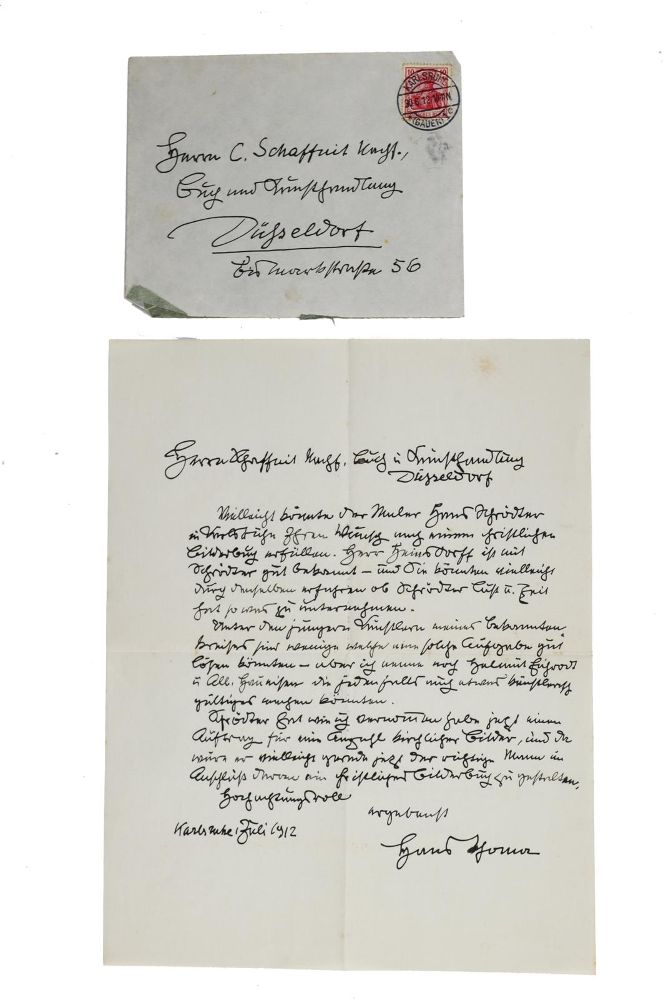 10 10
KARLSRUHE
30.6.12
(BADEN)
Herrn C. Schaffnit Nachf.,
Buch und Kunsthandlung
Düsseldorf
Bismarkstraße 56
Herrn Schaffnit Nachf. Buch u Kunsthandlung
Düsseldorf
Vielleicht könnte der Maler Hans Schrödter
in Karlsruhe Ihren Wunsch nach einem christlichen
Bilderbuch erfüllen. Herr Heinsdorff ist mit
Schrödter gut bekannt – und Sie könnten vielleicht
durch denselben erfahren ob Schrödter Lust u. Zeit
hat so was zu unternehmen.
Unter den jüngern Künstlern meines Bekannten
kreises sind wenige welche eine solche Aufgabe gut
lösen könnten – aber ich nenne noch Helmut Eichrodt
u Alb. Haueisen die jedenfalls auch etwas künstlerisch
gültiges machen könnten.
Schrödter hat wie ich vernommen habe jetzt einen
Auftrag für eine Anzahl kirchlicher Bilder, und da
wäre er vielleicht gerade jetzt der richtige Mann im
Anschluß daran ein christliches Bilderbuch zu gestalten,
Hochachtungsvoll
ergebenst
Karlsruhe, Juli 1912
Hans Thoma